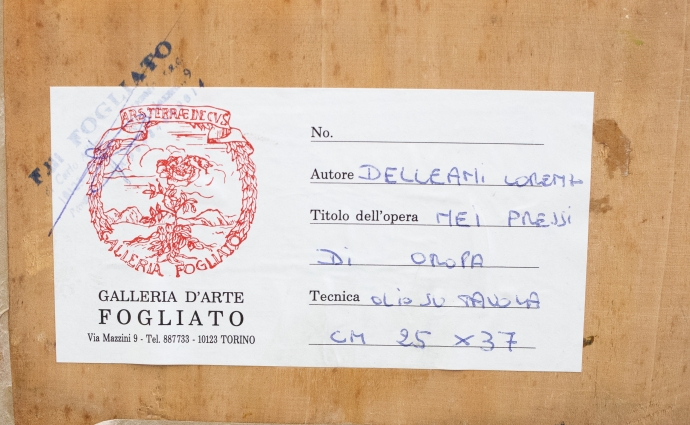 F.lli FOGLIATO
ARS TERRÆ DECVS
GALLERIA FOGLIATO
GALLERIA D'ARTE
FOGLIATO
Via Mazzini 9 - Tel. 887733 - 10123 TORINO
No.
Autore DELLEANI LORENZO
Titolo dell'opera NEI PRESSI
DI OROPA
Tecnica OLIO SU TAVOLA
CM 25 x 37